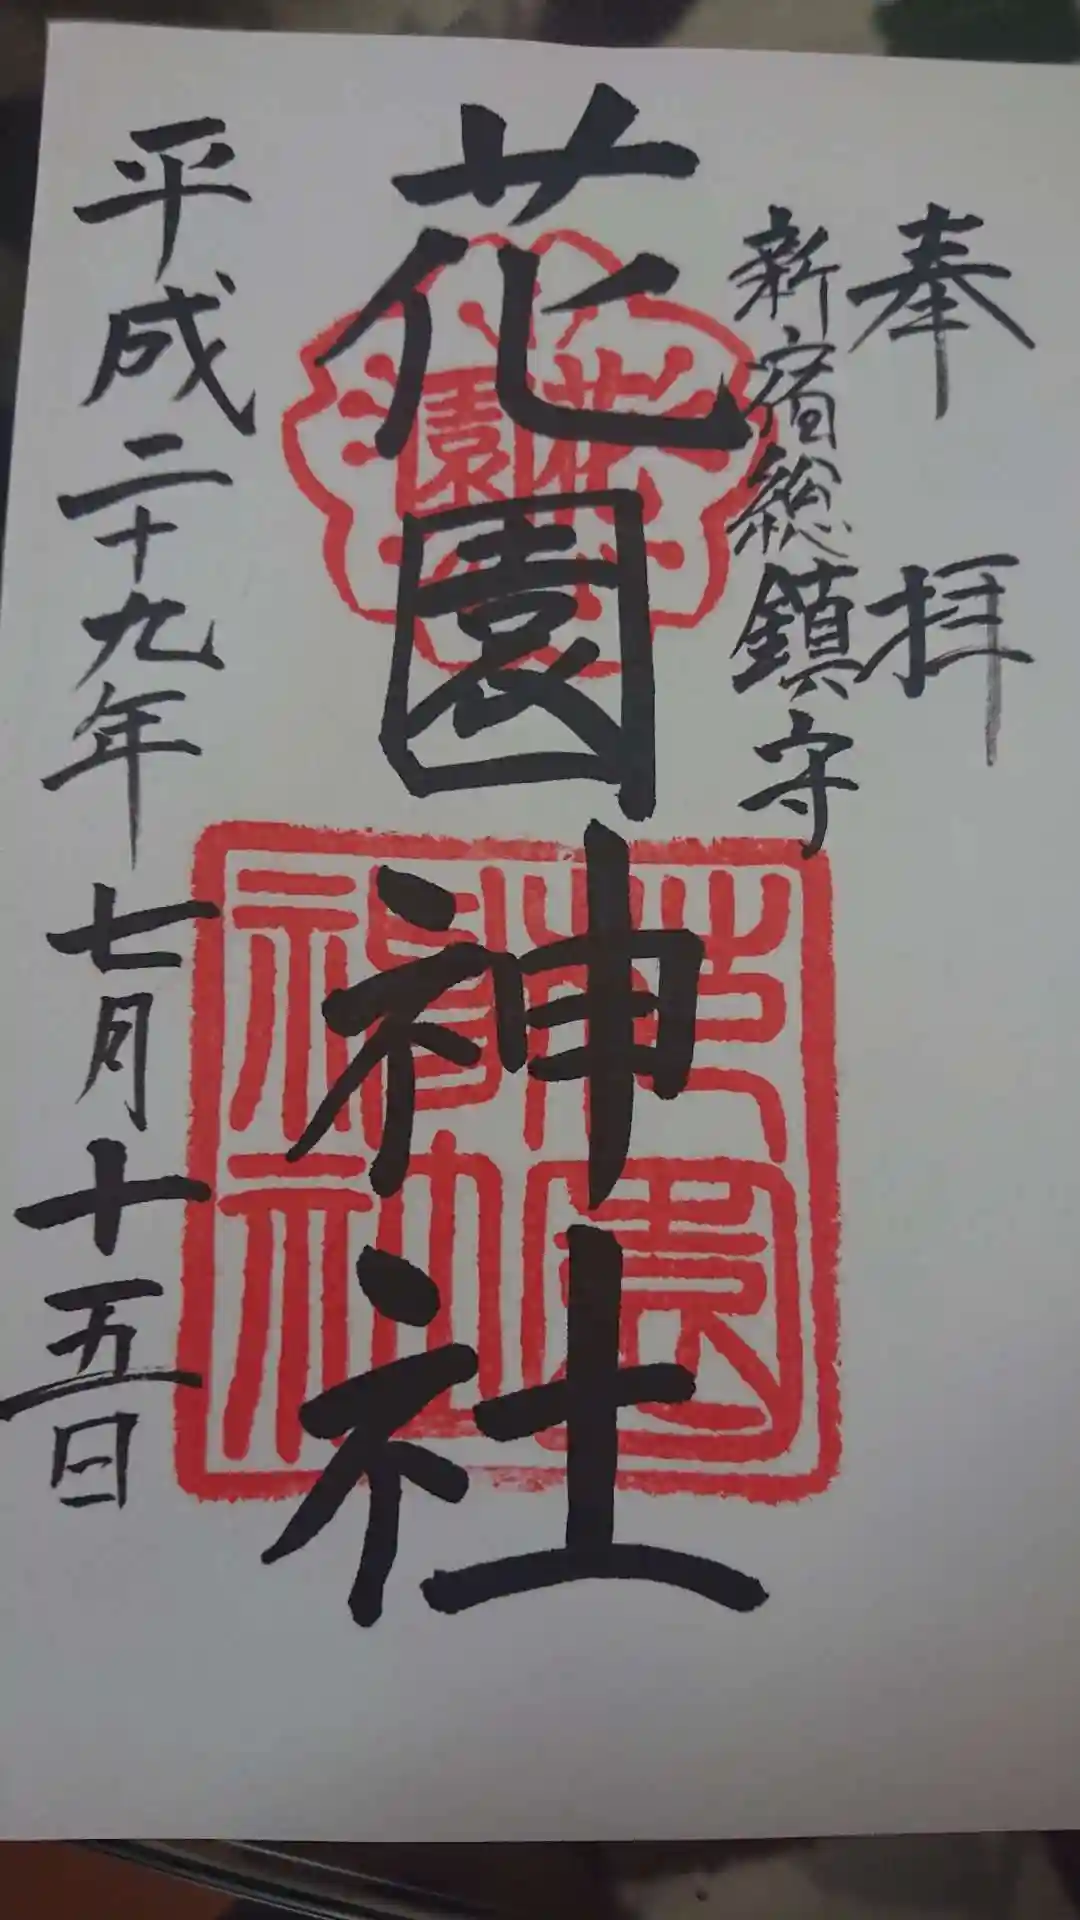 奉拝
新宿総鎮守
花園神社
花園
花園神社
平成二十九年七月十五日